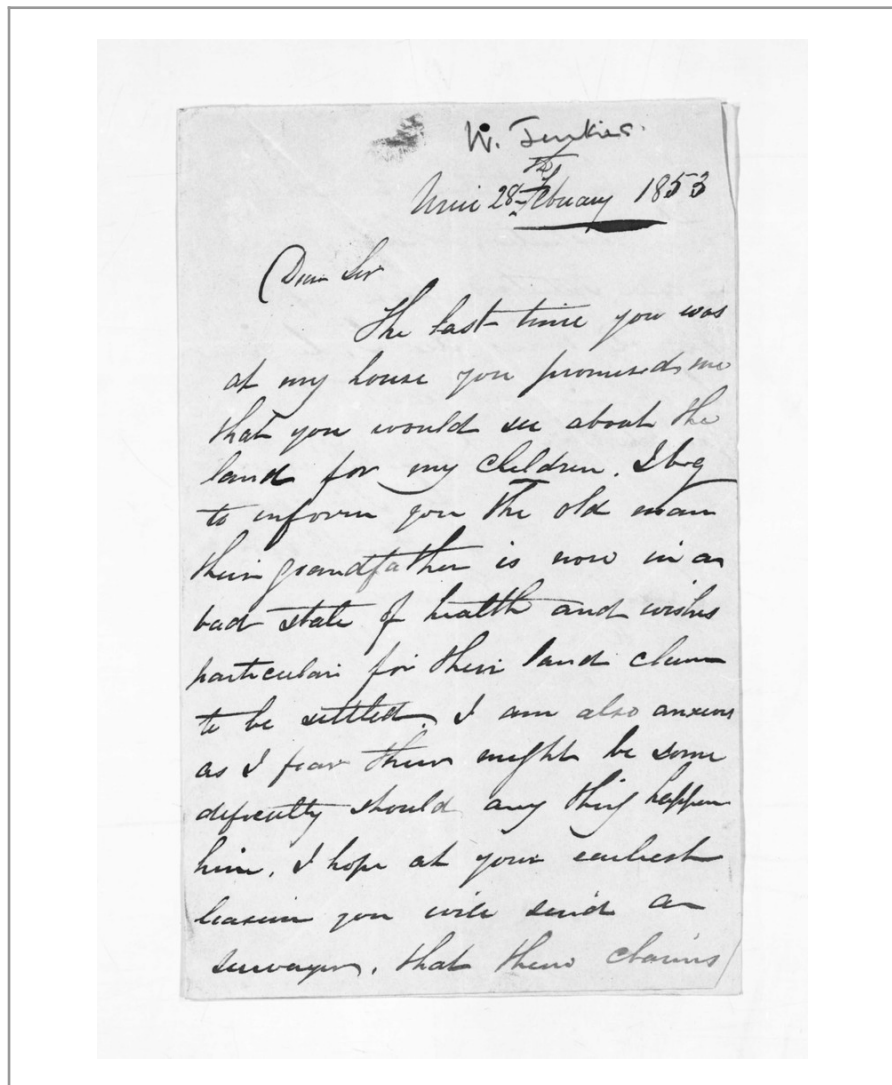 W. Jenkins.
28th February 1853
Dear Sir
The last time you was
at my house you promised me
that you would see about the
land for my children. I beg
to inform you The old man
their grandfather is now in a
bad state of health and wishes
particular for their land claim
to be settled. I am also anxious
as I fear their might be some
dificulty should any thing happen
him. I hope at your earliest
leasure you will send a
survayer, that their claims